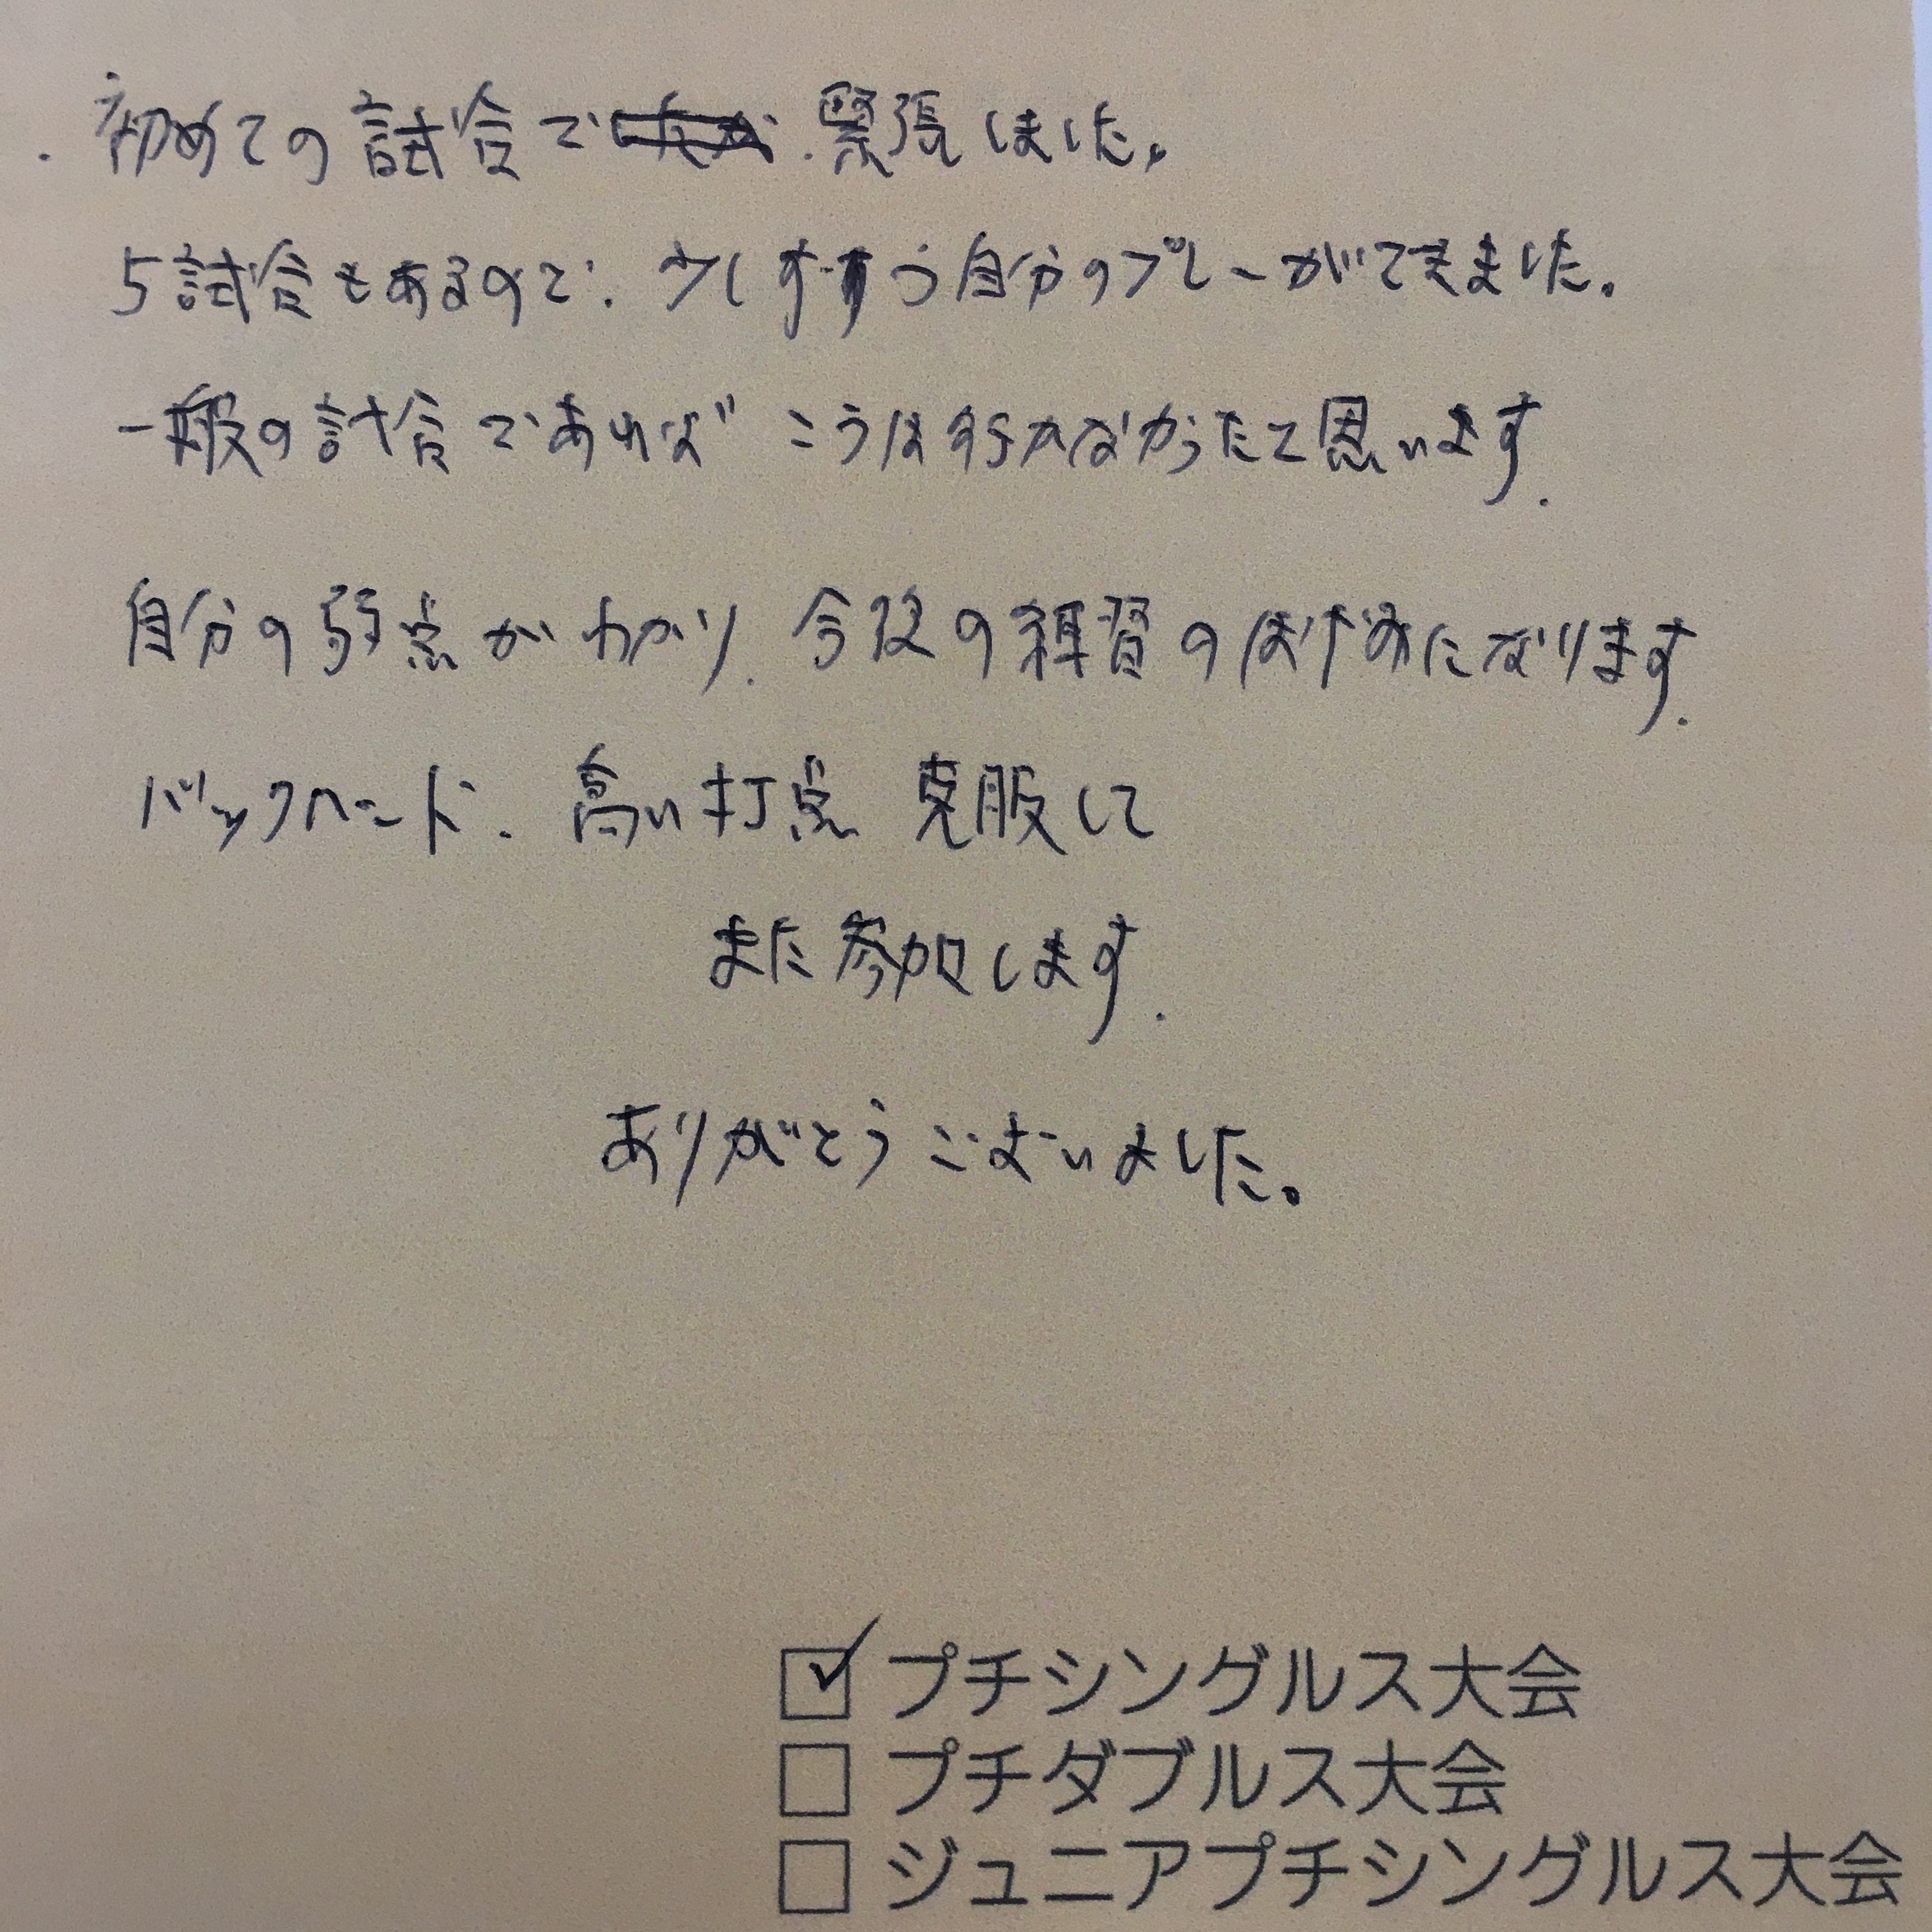 ・初めての試合で、緊張しました。
5試合もあるので、少しずつ自分のプレーができました。
一般の試合であればこうは行かなかったと思います。
自分の弱点がわかり、今後の練習のはげみになります。
バックハンド、高い打点 克服して
また参加します。
ありがとうございました。
☑プチシングルス大会
□プチダブルス大会
□ジュニアプチシングルス大会